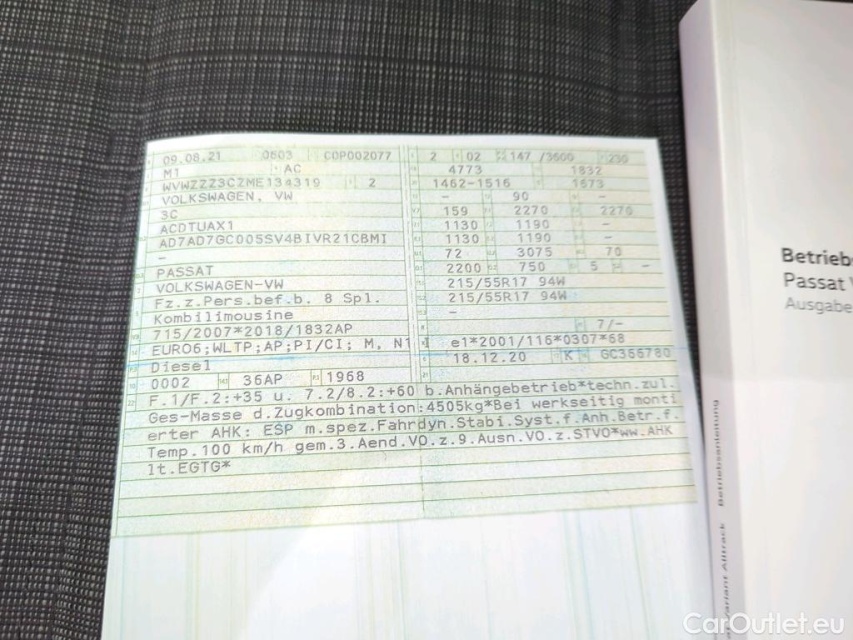 09.08.21 0603 C0P002077
M1 AC
WVWZZZ3CZME134319 2
VOLKSWAGEN, VW
3C
ACDTUAX1
AD7AD7GC005SV4BIVR21CBMI
-
PASSAT
VOLKSWAGEN-VW
Fz.z.Pers.bef.b. 8 Spl.
Kombilimousine
715/2007*2018/1832AP
EURO6;WLTP;AP;PI/CI; M, N1
Diesel
0002 36AP 1968
2 02 147 /3600 230
4773 1832
1462-1516 1673
- 90 -
159 2270 2270
1130 1190 -
1130 1190 -
72 3075 70
2200 750 5 -
215/55R17 94W
215/55R17 94W
-
- 7/-
e1*2001/116*0307*68
18.12.20 K GC366780
F.1/F.2:+35 u. 7.2/8.2:+60 b.Anhängebetrieb*techn.zul.
Ges-Masse d.Zugkombination:4505kg*Bei werkseitig monti
erter AHK: ESP m.spez.Fahrdyn.Stabi.Syst.f.Anh.Betr.f.
Temp.100 km/h gem.3.Aend.VO.z.9.Ausn.VO.z.STVO*ww.AHK
lt.EGTG*
Betrieb
Passat V
Ausgabe
Variant Alltrack Betriebsanleitung
CarOutlet.eu